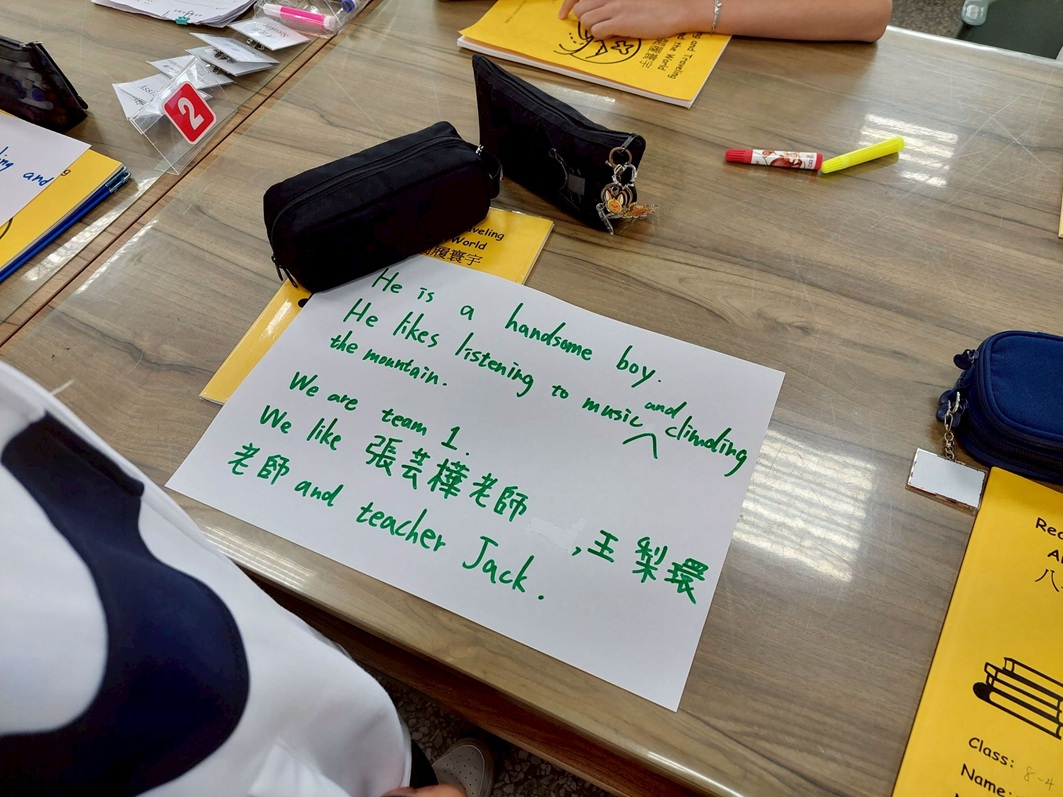 He is a handsome boy.
He likes listening to music and climding
the mountain.
We are team 1.
We like 張芸樺老師,王梨環
老師 and teacher Jack.
2
and Traveling
the World
履寰宇
veling
World
履寰宇
ling and
Class: 8-4
Name: